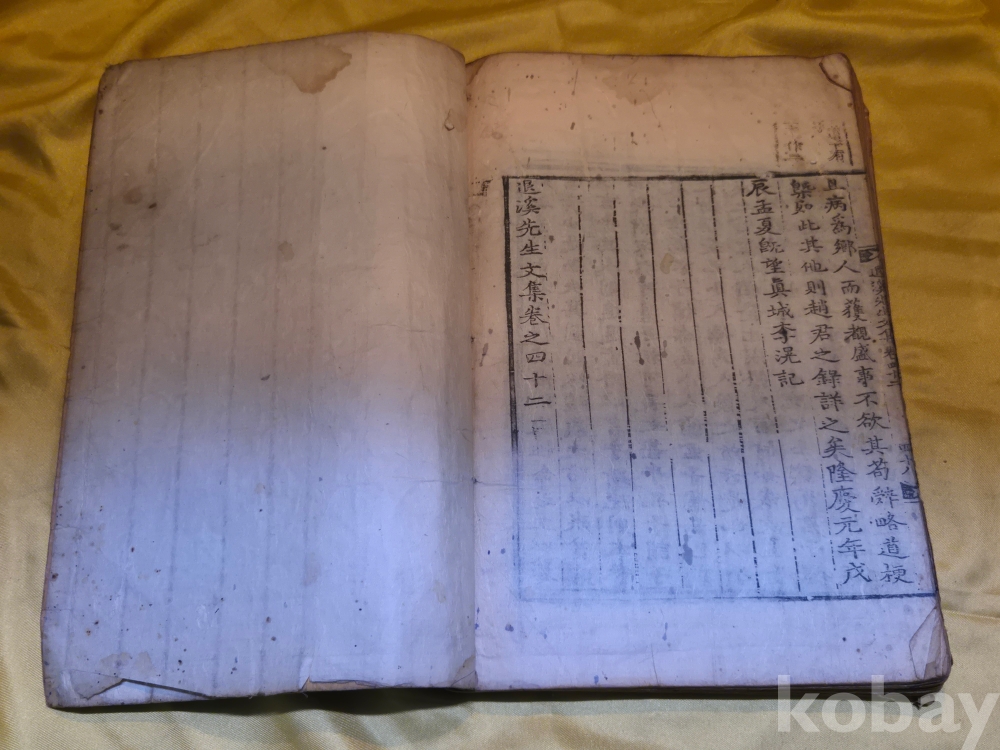 退溪先生文集卷四十二
且病爲鄉人而獲覩盛事不欲其苟辭略道梗
槩如此其他則趙君之錄詳之矣隆慶元年戊
辰孟夏旣望眞城李滉記
退溪先生文集卷之四十二
kobay